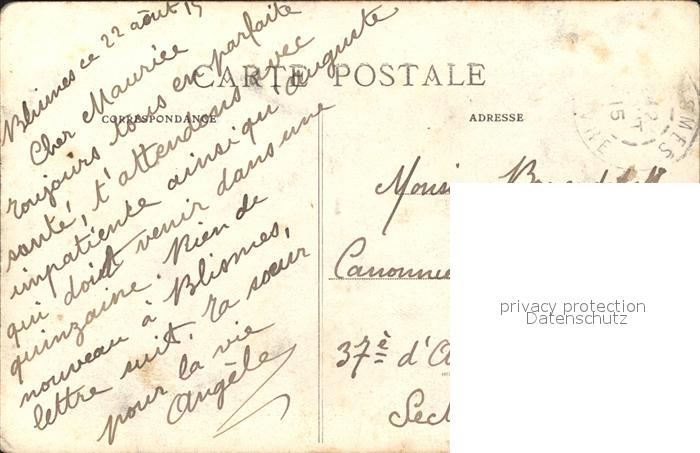 Blismes ce 22 août 15
Cher Maurice
toujours tous en parfaite
santé, t'attendons avec
impatience ainsi qu'Auguste
qui doit venir dans une
quinzaine. Rien de
nouveau à Blismes,
lettre suit. ta soeur
pour la vie
Angèle
CARTE POSTALE
CORRESPONDANCE
ADRESSE
15
37è d'A
privacy protection
Datenschutz